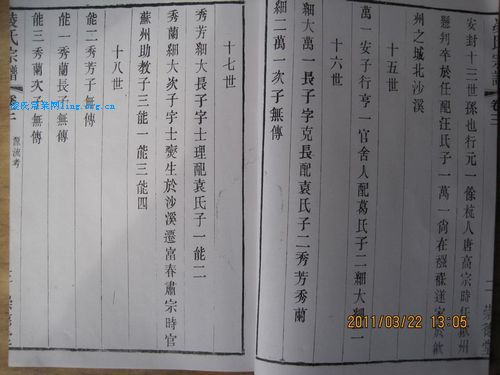 安封十三世孫也行元一餘杭人唐高宗時任歙州
懸判卒於任配汪氏子一萬一尚在襁褓遂家於歙
州之城北沙溪
十五世
萬一安子行亨一官舍人配葛氏子二細大細二
十六世
細大萬一長子字克長配袁氏子二秀芳秀蘭
細二萬一次子無傳
十七世
秀芳細大長子字士理配袁氏子一能二
秀蘭細大次子字士燮生於沙溪遷富春肅宗時官
蘇州助教子三能一能三能四
十八世
能二秀芳子無傳
能一秀蘭長子無傳
能三秀蘭次子無傳
凌氏宗譜
卷之二
源流考
凌氏尋菜网ling.org.cn
2011/03/22 13:05